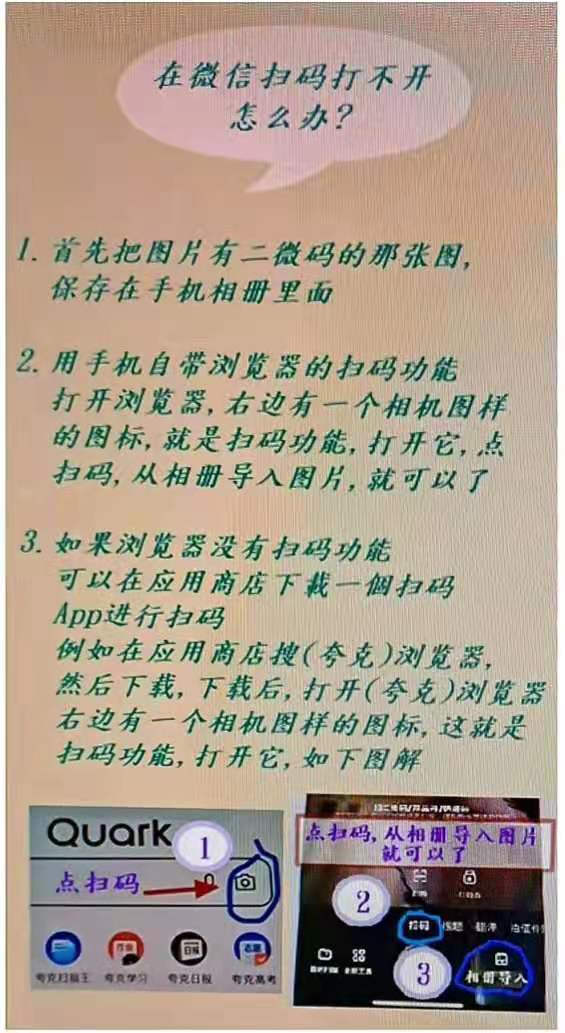 在微信扫码打不开
怎么办?
1. 首先把图片有二微码的那张图,
保存在手机相册里面
2. 用手机自带浏览器的扫码功能
打开浏览器, 右边有一个相机图样
的图标, 就是扫码功能, 打开它, 点
扫码, 从相册导入图片, 就可以了
3. 如果浏览器没有扫码功能
可以在应用商店下載一個扫码
App进行扫码
例如在应用商店搜(夸克)浏览器,
然后下载, 下载后, 打开(夸克)浏览器
右边有一个相机图样的图标, 这就是
扫码功能, 打开它, 如下图解
Quark
1
点扫码
夸克扫描王 夸克学习 夸克日报 夸克高考
点扫码, 从相册导入图片
就可以了
2
扫码 翻译
3
相册导入